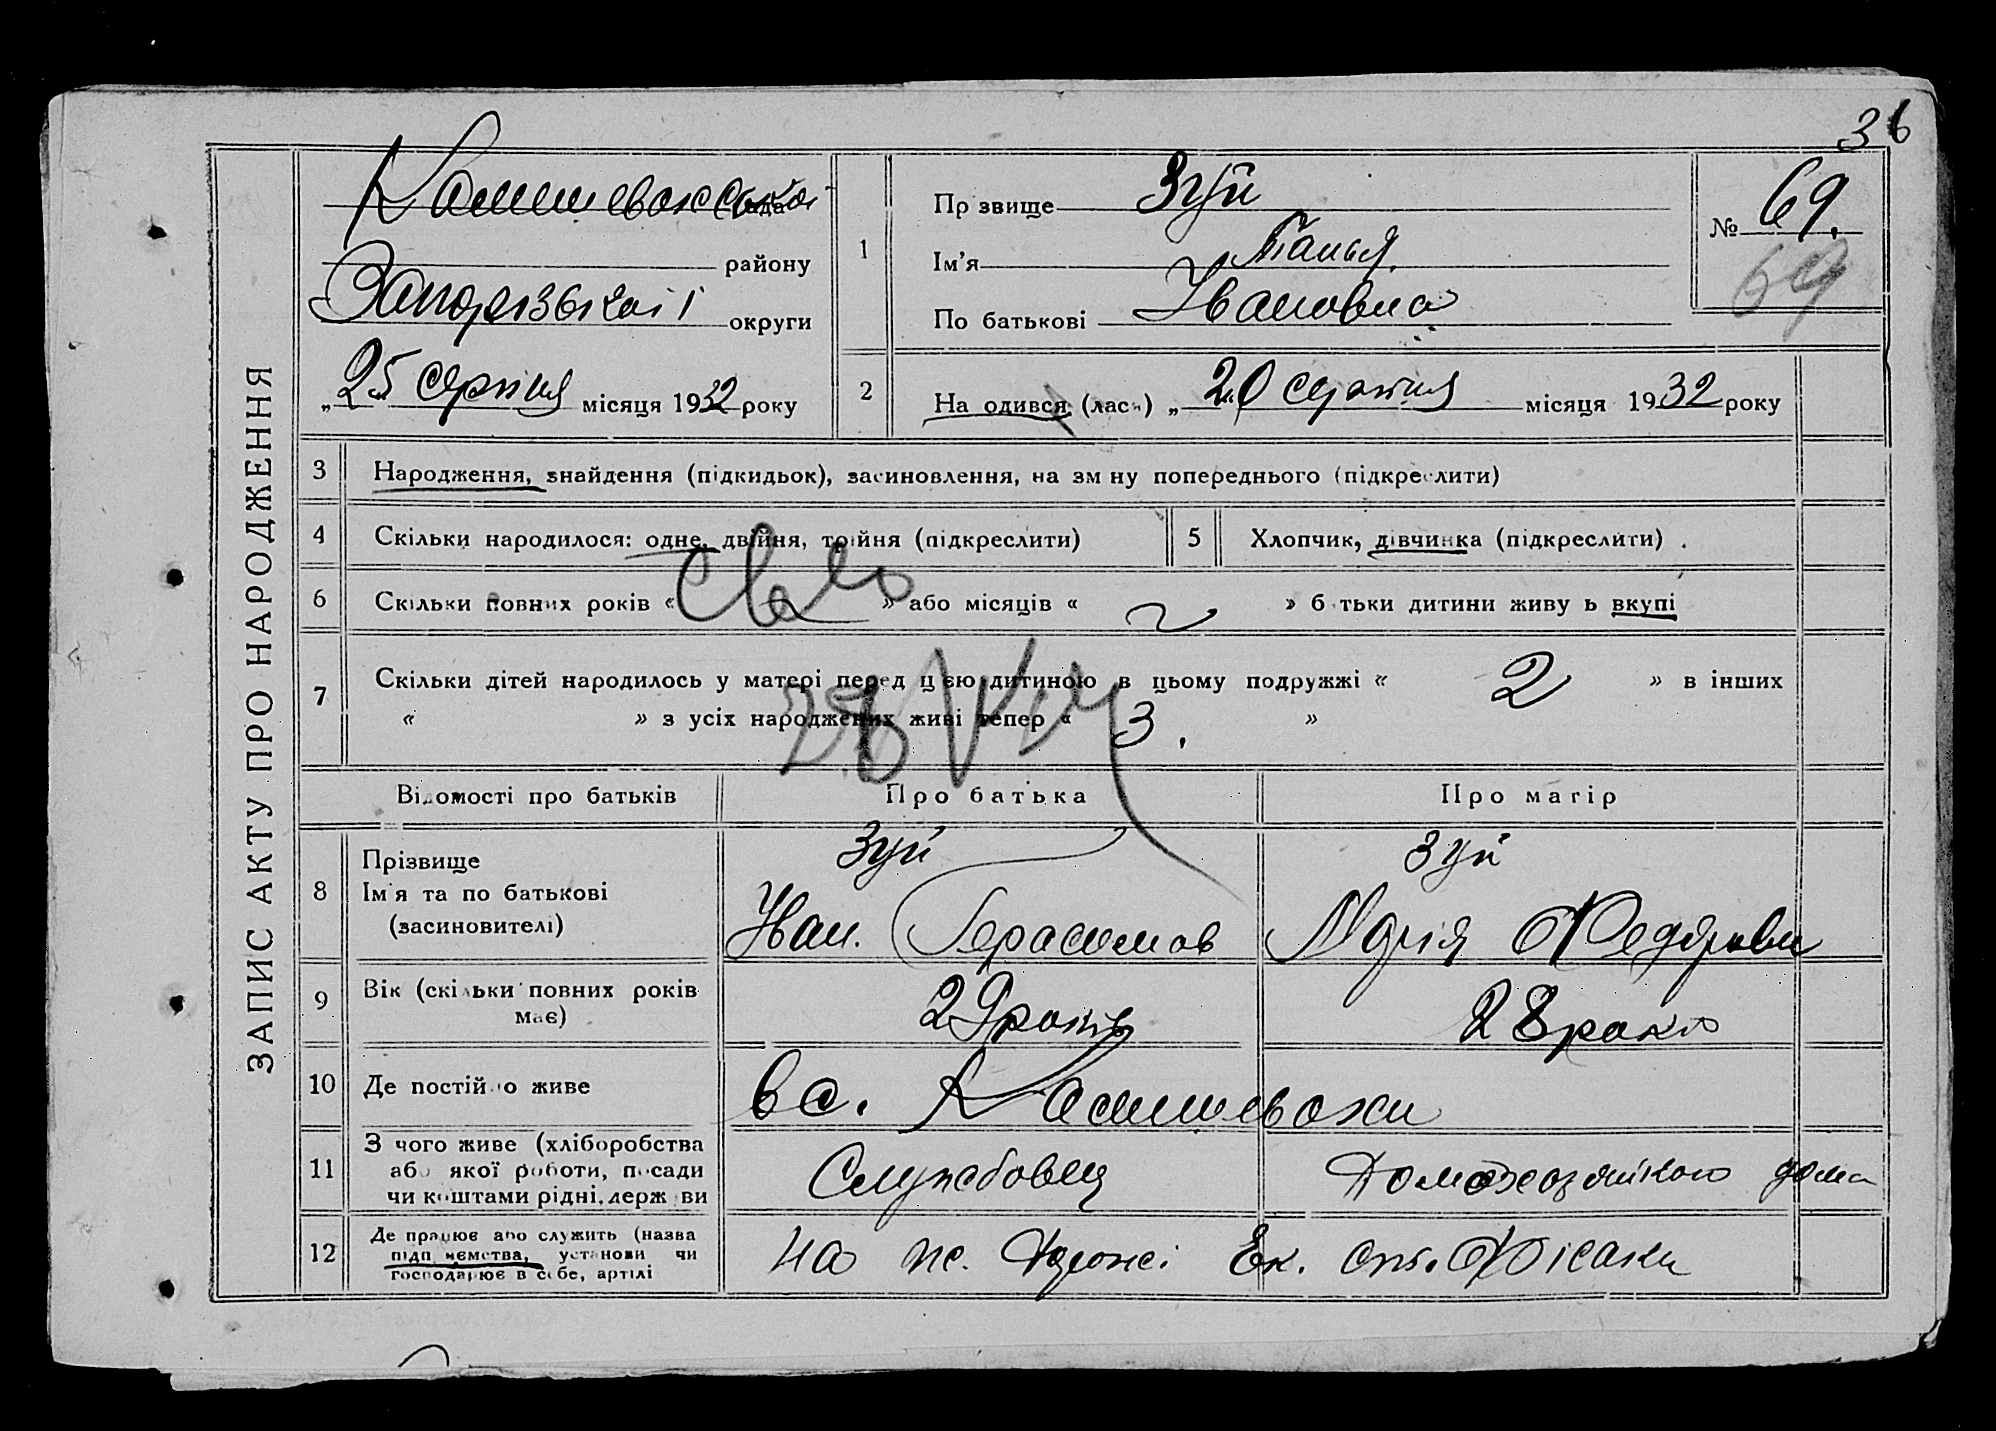 36
ЗАПИС АКТУ ПРО НАРОДЖЕННЯ
Камишеваська рада
району
Запорізької округи
„25" серпня місяця 1932 року
1
Пр звище Зуй
Ім'я Танья
По батькові Ивановна
№ 69.
69
2
На одився (лась) „20 серпня місяця 1932 року
3 Народження, знайдення (підкидьок), засиновлення, на зм ну попереднього (підкреслити)
4 Скільки народилося: одне, двійня, трійня (підкреслити)
5 Хлопчик, дівчинка (підкреслити) .
6 Скільки повних років « » або місяців « » б тьки дитини живу ь вкупі
7 Скільки дітей народилось у матері перед ц єю дитиною в цьому подружжі « 2 » в інших
« » з усіх народжених живі тепер « 3. »
Відомості про батьків Про батька Про матір
8 Прізвище Зуй Зуй
Ім'я та по батькові Иван. Герасимов Марія Федоровн
(засиновителі)
9 Вік (скільки повних років має) 29 років 28 років
10 Де постійно живе в с. Камишевахи
11 З чого живе (хліборобства або якої роботи, посади чи коштами рідні, держ ви Службовец Домохозяйкою дома
12 Де працює або служить (назва підп ємства, установи чи господарює в себе, артілі на Ек.